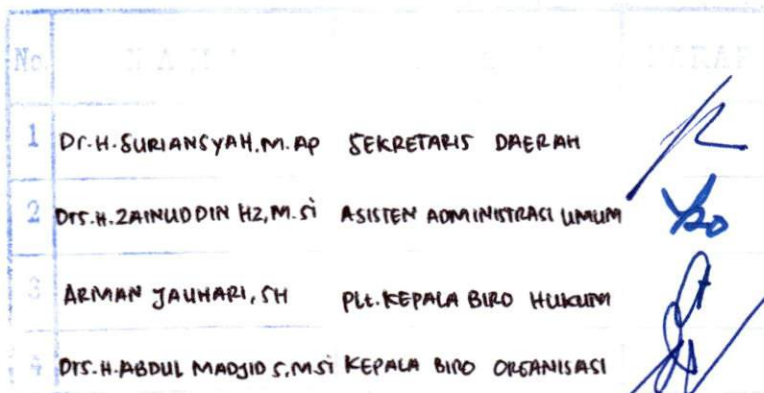 No. NAMA PARAF
1 Dr.H.SURIANSYAH.M.AP SEKRETARIS DAERAH
2 Drs.H.ZAINUDDIN HZ,M.Si ASISTEN ADMINISTRASI UMUM
3 ARMAN JAUHARI, SH Plt.KEPALA BIRO HUKUM
4 Drs.H.ABDUL MADJID S,M.Si KEPALA BIRO ORGANISASI